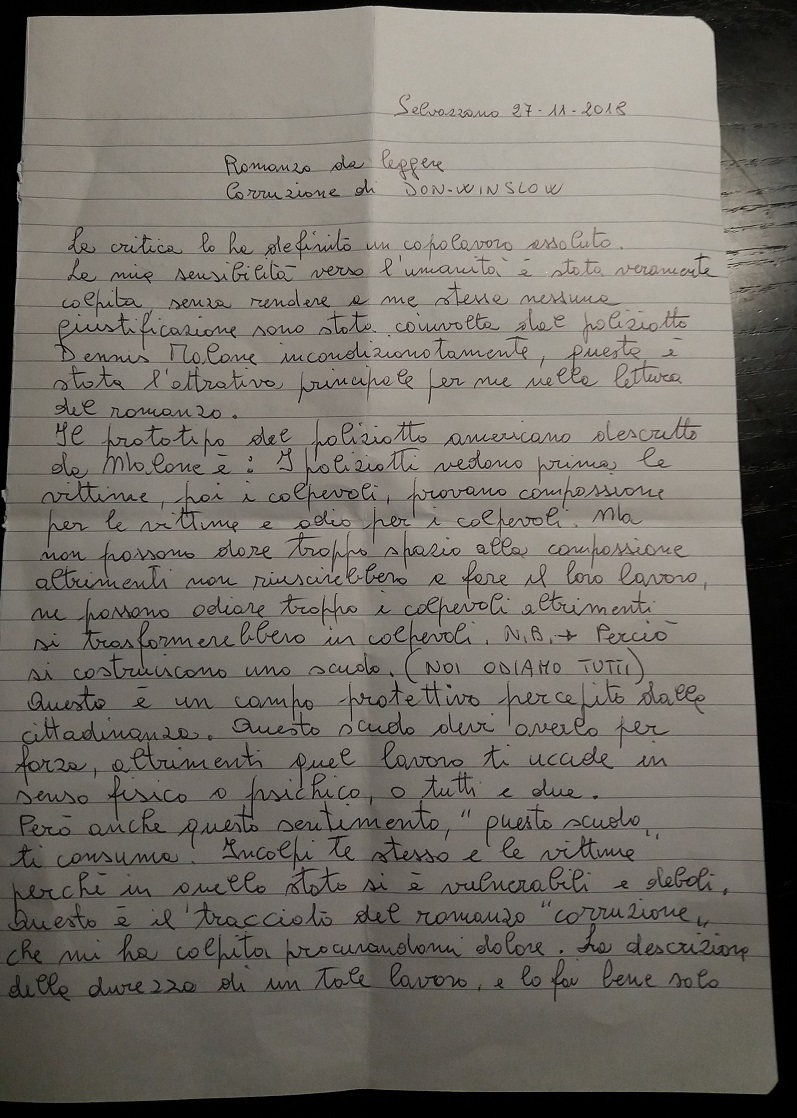 Selvazzano 27-11-2018
Romanzo da leggere
Corruzione di DON-WINSLOW
La critica lo ha definito un capolavoro assoluto.
La mia sensibilità verso l'umanità è stata veramente
colpita senza rendere a me stessa nessuna
giustificazione sono stata coinvolta dal poliziotto
Dennis Malone incondizionatamente, questa è
stata l'attrativa principale per me nella lettura
del romanzo.
Il prototipo del poliziotto americano descritto
da Malone è: I poliziotti vedono prima le
vittime, poi i colpevoli, provano compassione
per le vittime e odio per i colpevoli. Ma
non possono dare troppo spazio alla compassione
altrimenti non riuscirebbero a fare il loro lavoro,
ne possono odiare troppo i colpevoli altrimenti
si trasformerebbero in colpevoli. N.B. → Perciò
si costruiscono uno scudo. (NOI ODIAMO TUTTI)
Questo è un campo protettivo percepito dalla
cittadinanza. Questo scudo devi averlo per
forza, altrimenti quel lavoro ti uccide in
senso fisico o psichico, o tutti e due.
Però anche questo sentimento, "questo scudo„
ti consuma. Incolpi te stesso e le vittime
perchè in quello stato si è vulnerabili e deboli.
Questo è il tracciato del romanzo "corruzione„
che mi ha colpita procurandomi dolore. La descrizione
della durezza di un tale lavoro, e lo fai bene solo